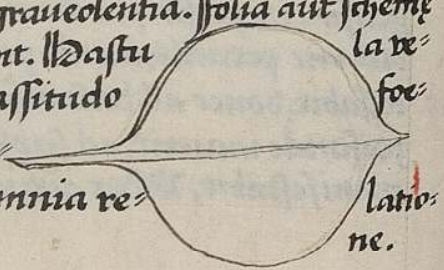 graueolentia. folia aut schemę
nt. Hastu la re⸗
assitudo foe⸗
mnia re⸗ latio⸗
ne.